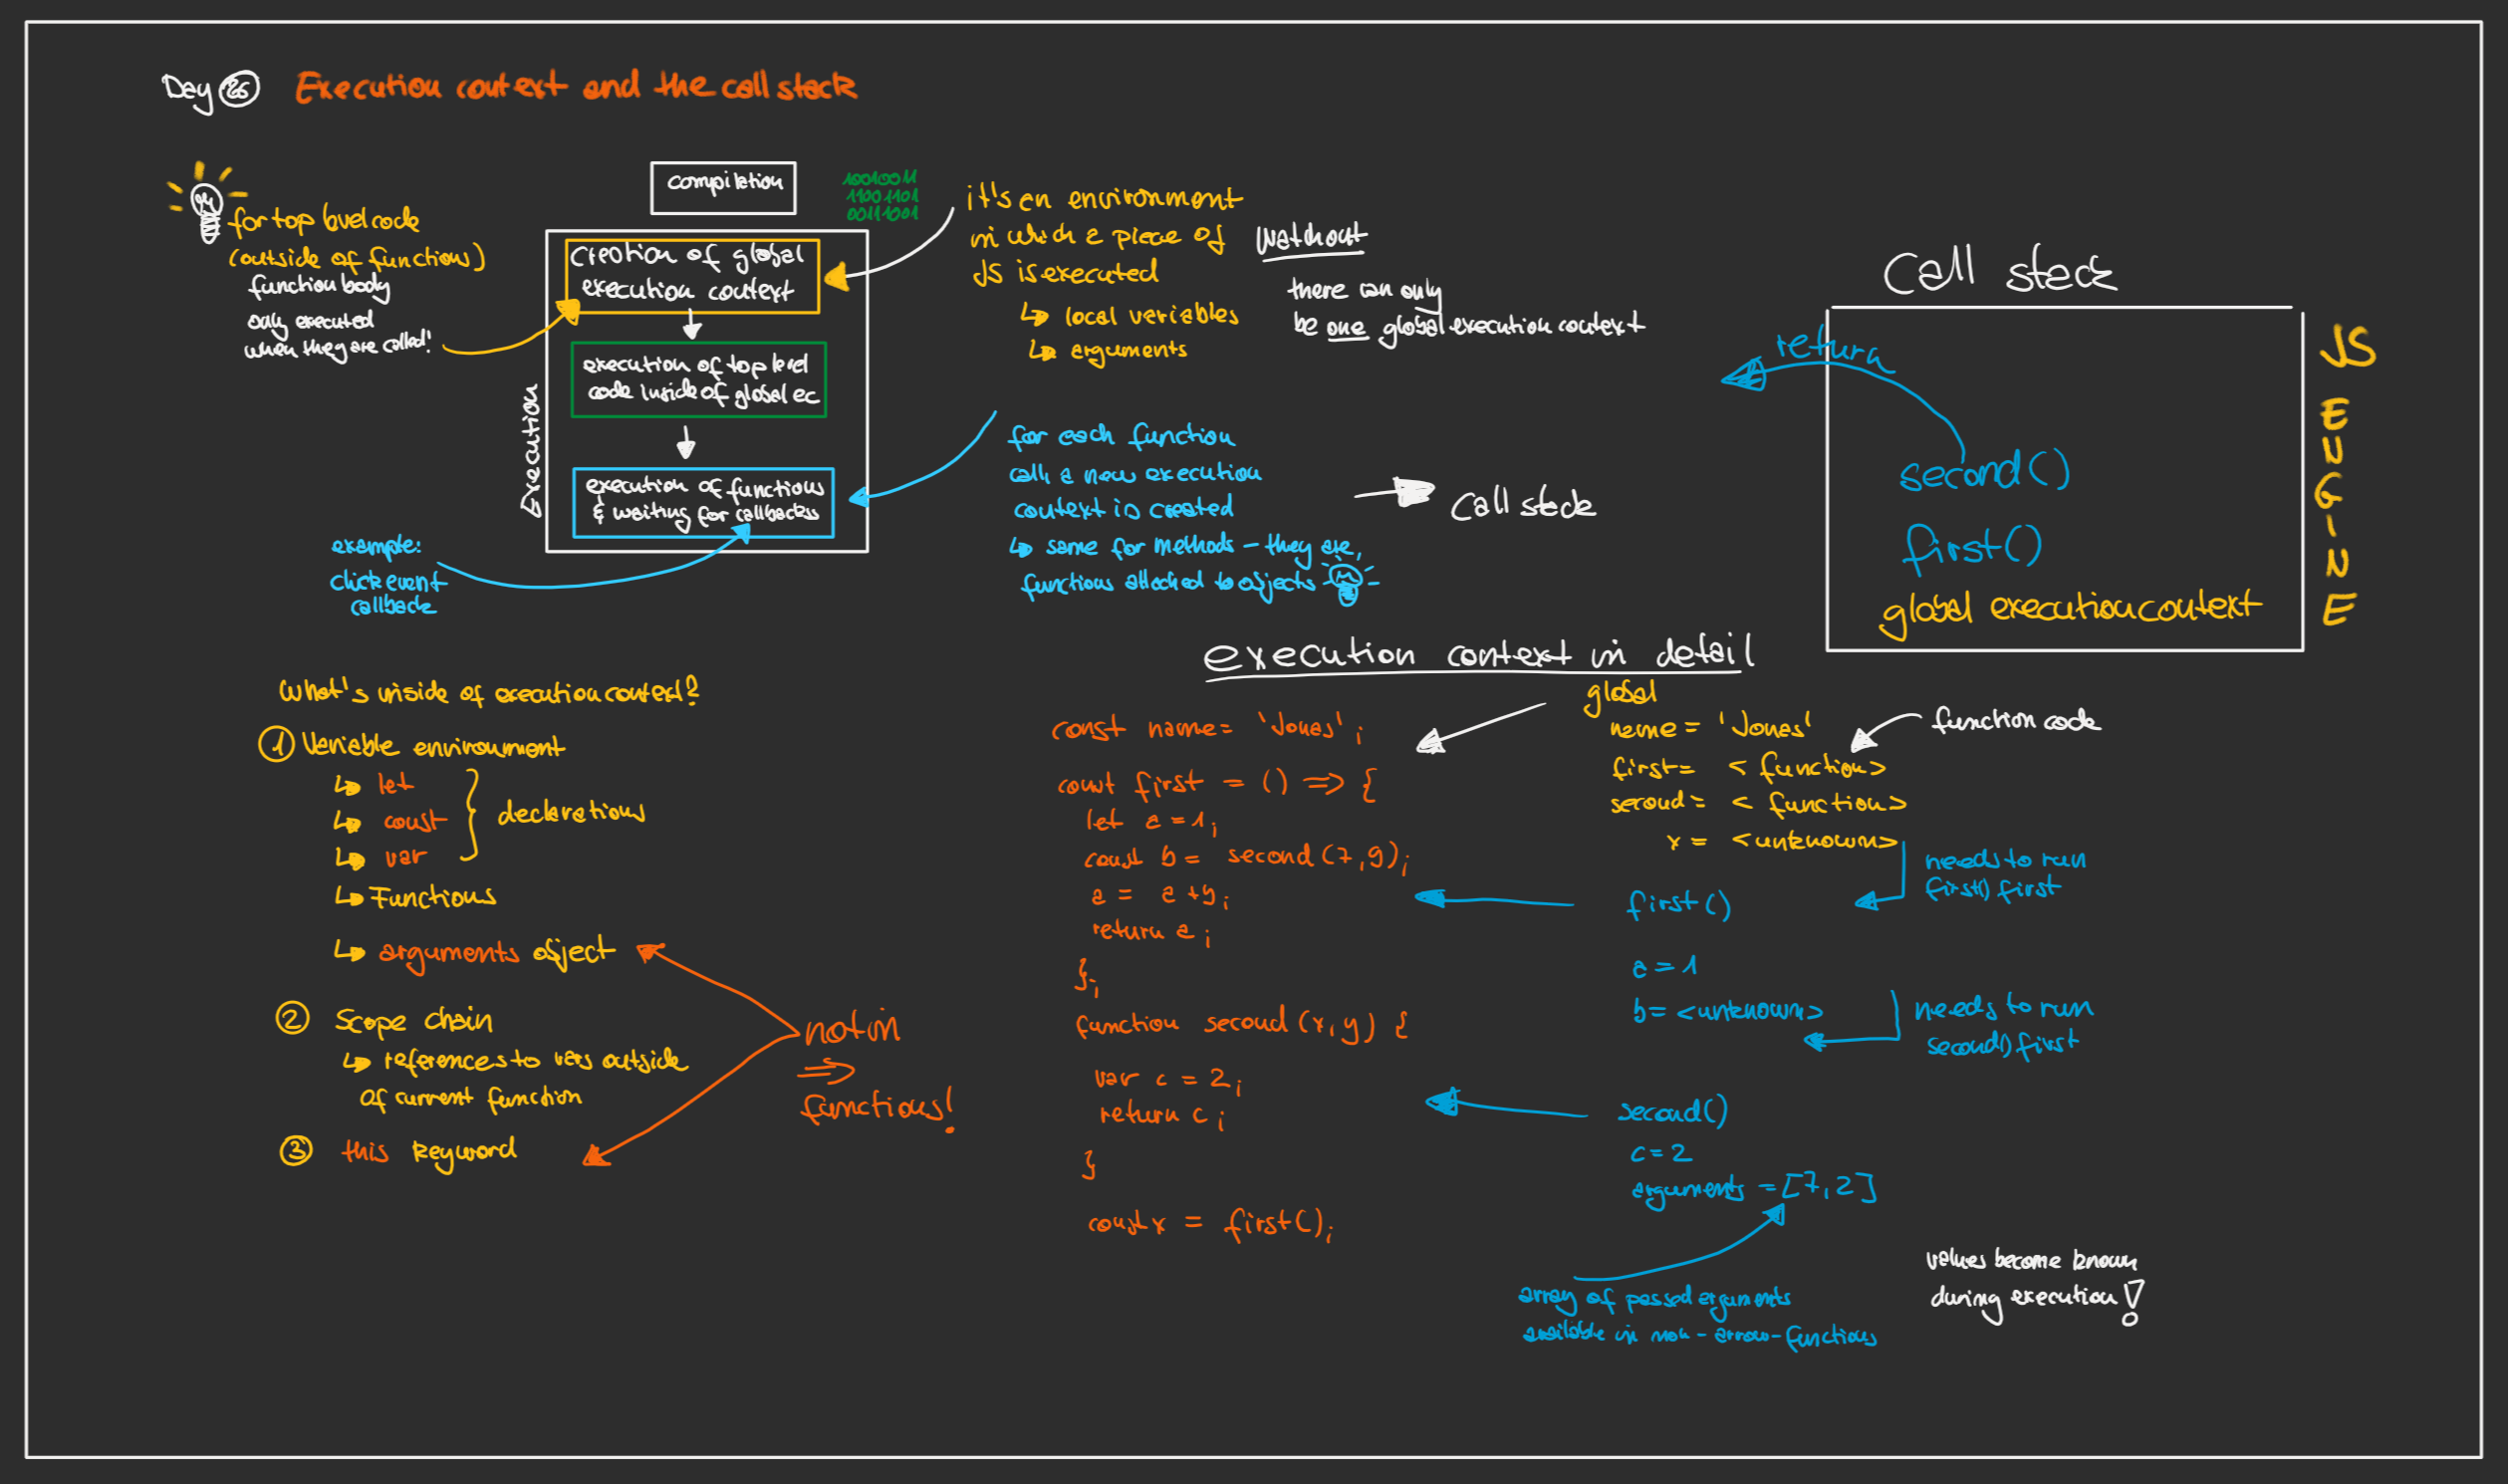 Day 26 Execution context and the call stack
compilation
10010011
11001101
00111001
for top level code
(outside of functions)
function body
only executed
when they are called!
Creation of global
execution context
execution of top level
code inside of global ec
execution of functions
& waiting for callbacks
Execution
example:
click event
callback
it's an environment
in which a piece of
JS is executed
↳ local variables
↳ arguments
Watch out
there can only
be one global execution context
for each function
call, a new execution
context is created
↳ same for methods - they are,
functions attached to objects
Call stack
Call stack
return
second()
first()
global execution context
JS
E
N
G
I
N
E
What's inside of execution context?
① Variable environment
↳ let
↳ const
↳ var
declarations
↳ Functions
↳ arguments object
② Scope chain
↳ references to vars outside
of current function
③ this keyword
not in
=>
functions!
execution context in detail
const name = 'Jonas';
const first = () => {
let a = 1;
const b = second(7,9);
a = a + b;
return a;
};
function second (x,y) {
var c = 2;
return c;
}
const x = first();
global
name = 'Jonas'
first = <function>
second = <function>
x = <unknown>
function code
needs to run
first() first
first()
a = 1
b = <unknown>
needs to run
second() first
second()
c = 2
arguments = [7,2]
array of passed arguments
available in non-arrow-functions
values become known
during execution!